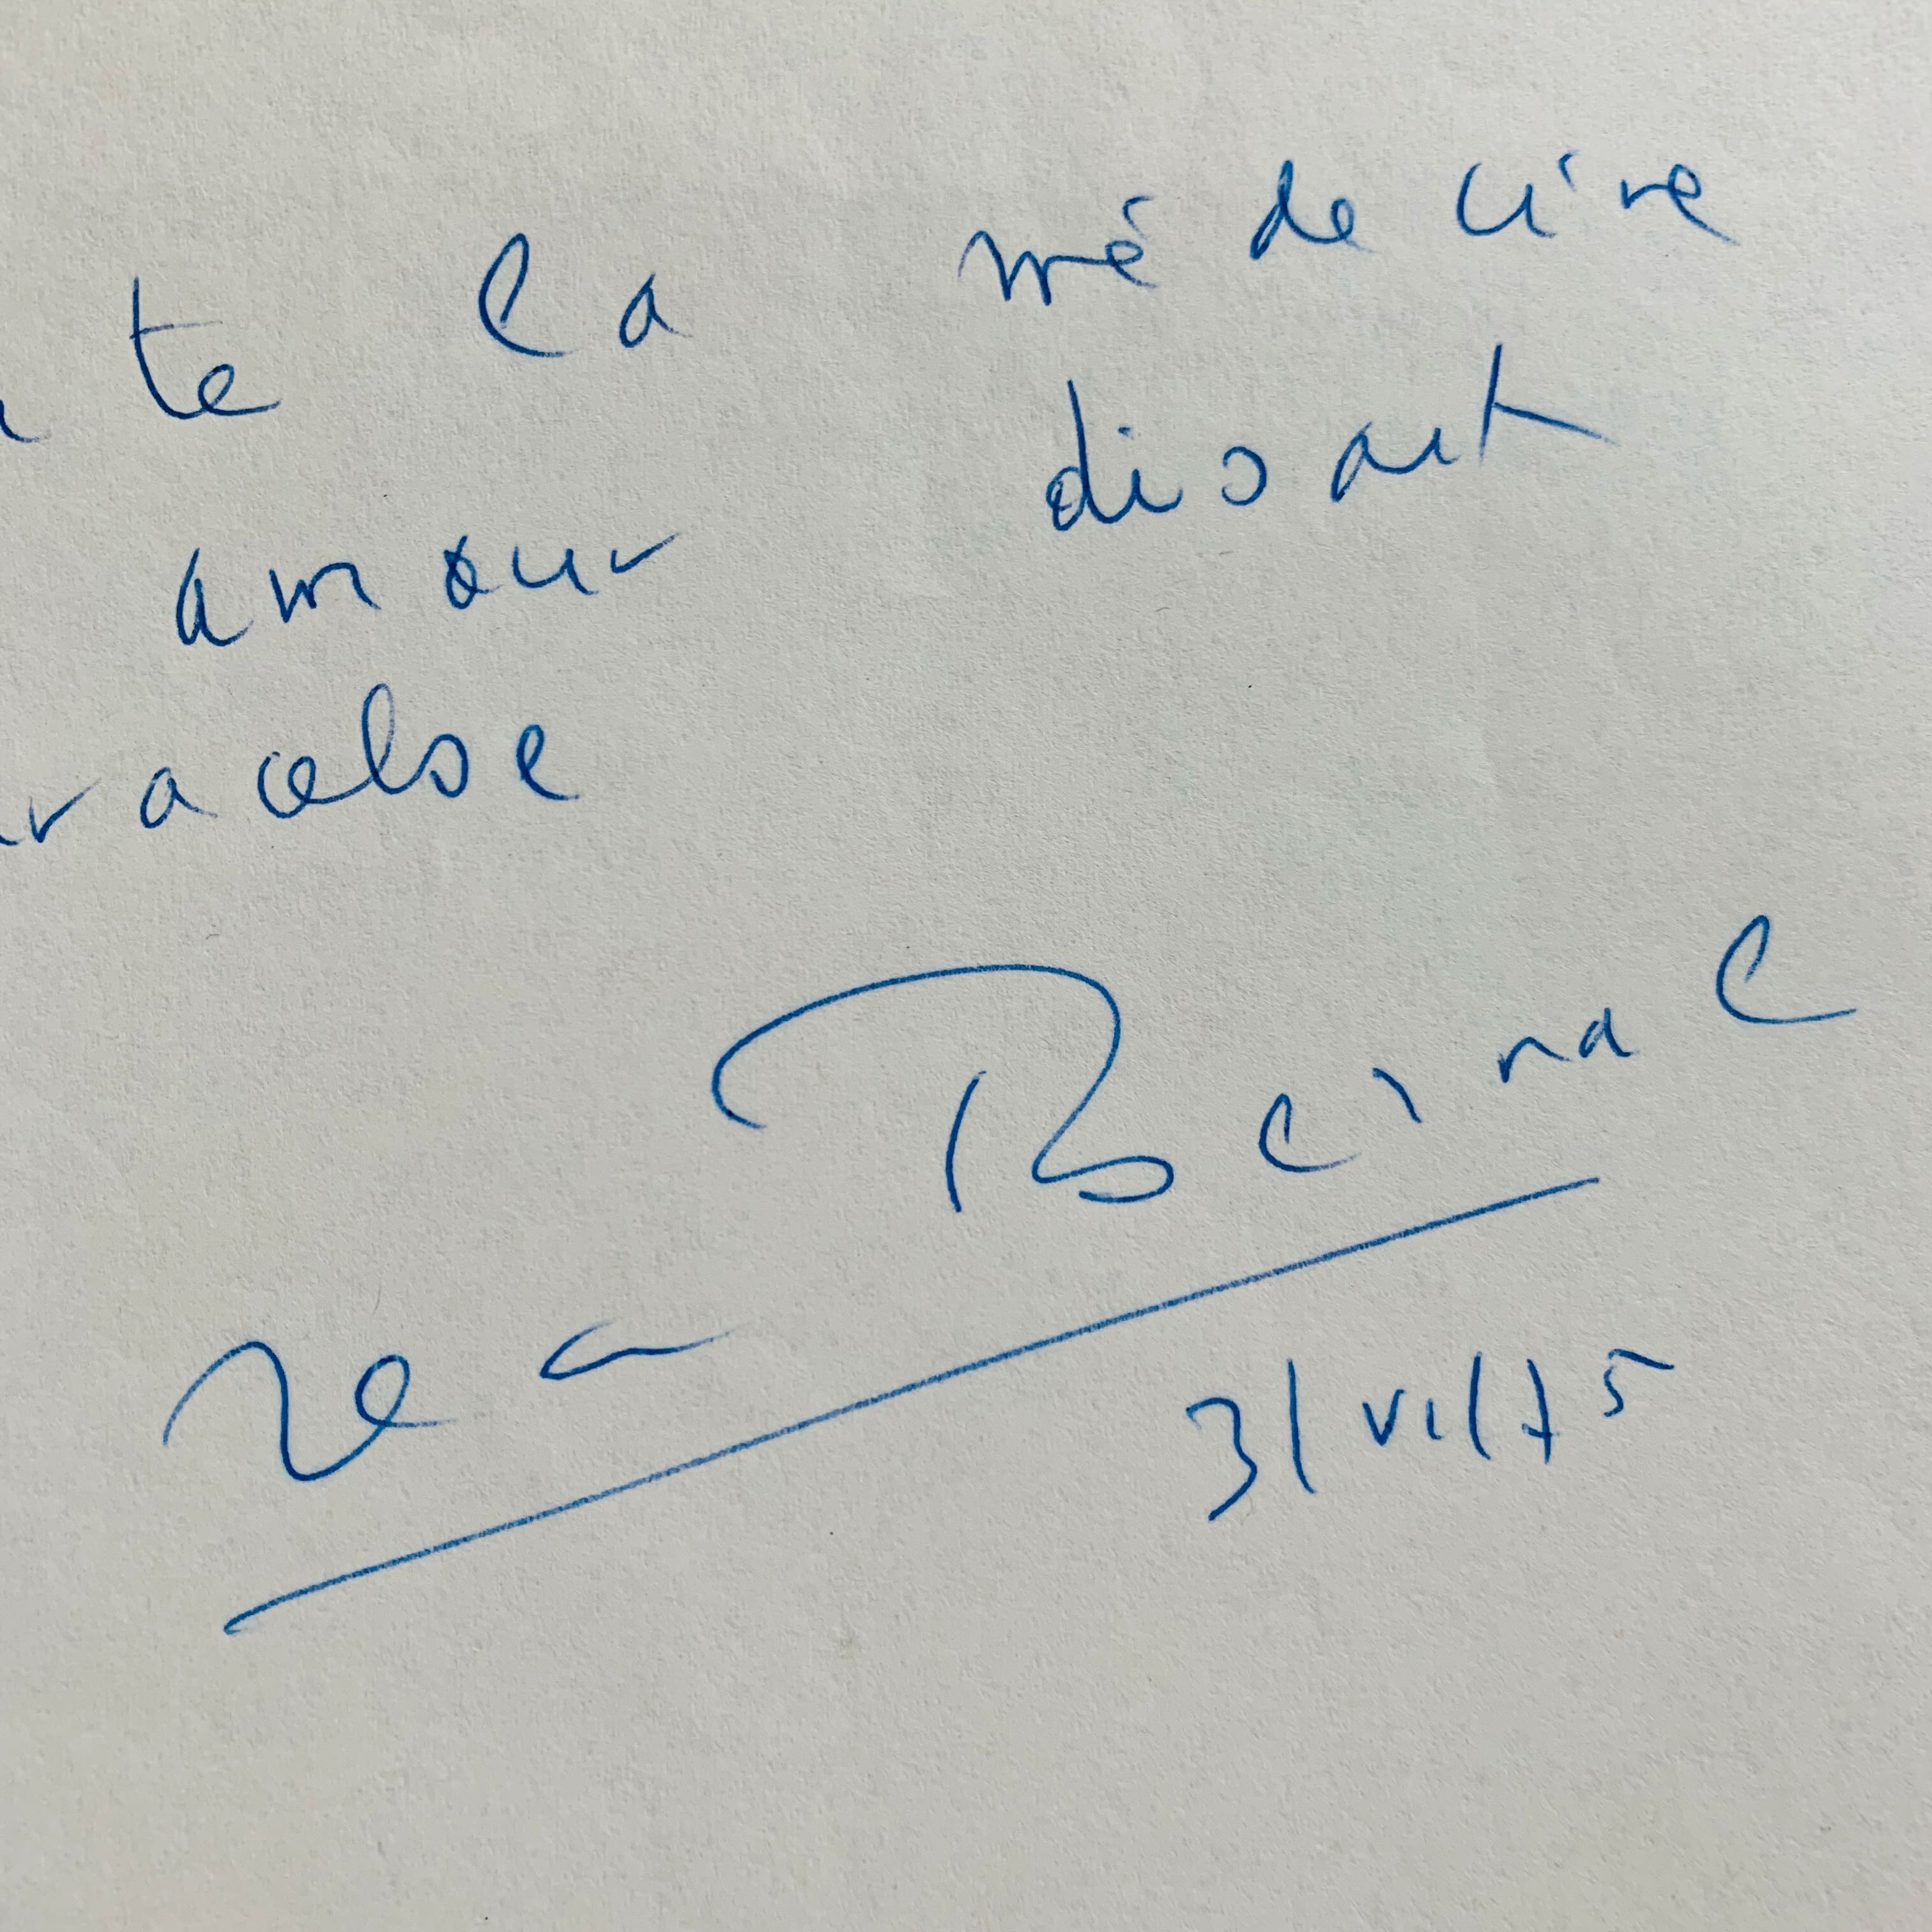 te la médecine
amour disait
racelse
Jean Bernal
3/VII/75